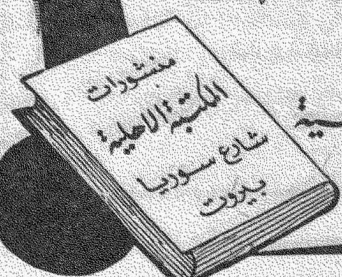 منشورات
المكتبة الاهلية
شارع سوريا
بيروت